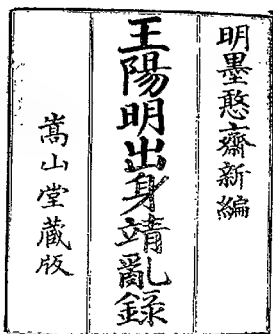 明墨憨齋新編
王陽明出身靖亂錄
嵩山堂蔵版